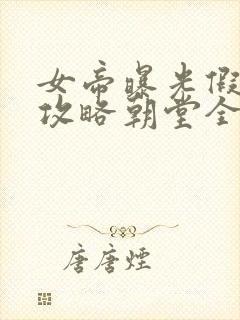 女帝曝光假
攻略朝堂全
唐唐煙